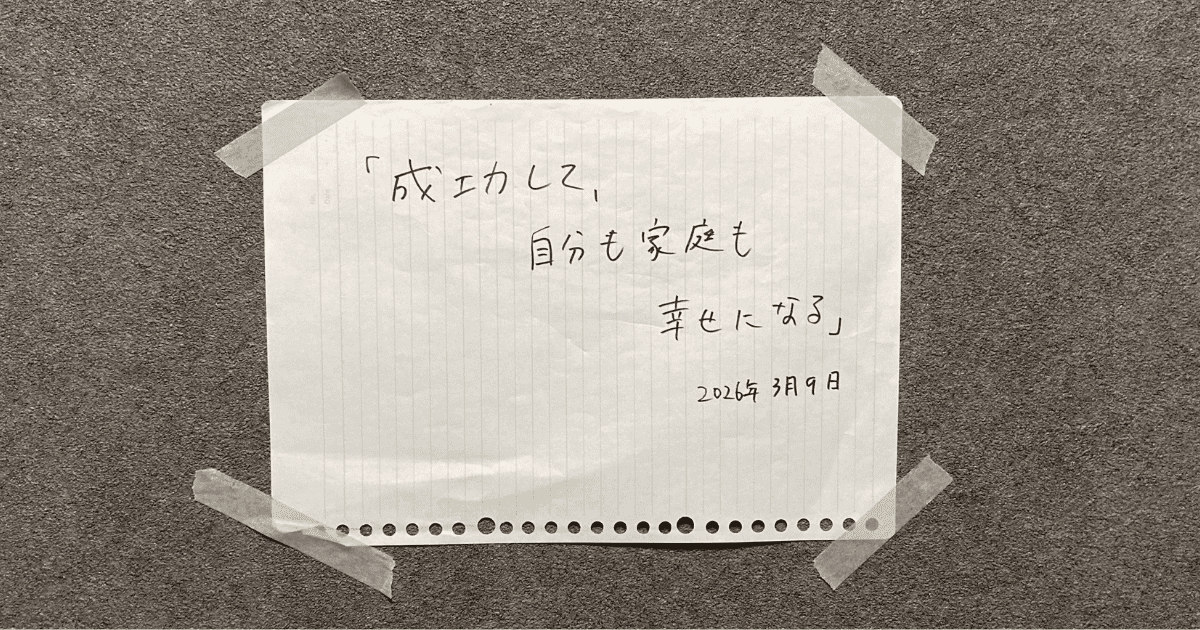 「成功して、
自分も家庭も
幸せになる」
2026年3月9日